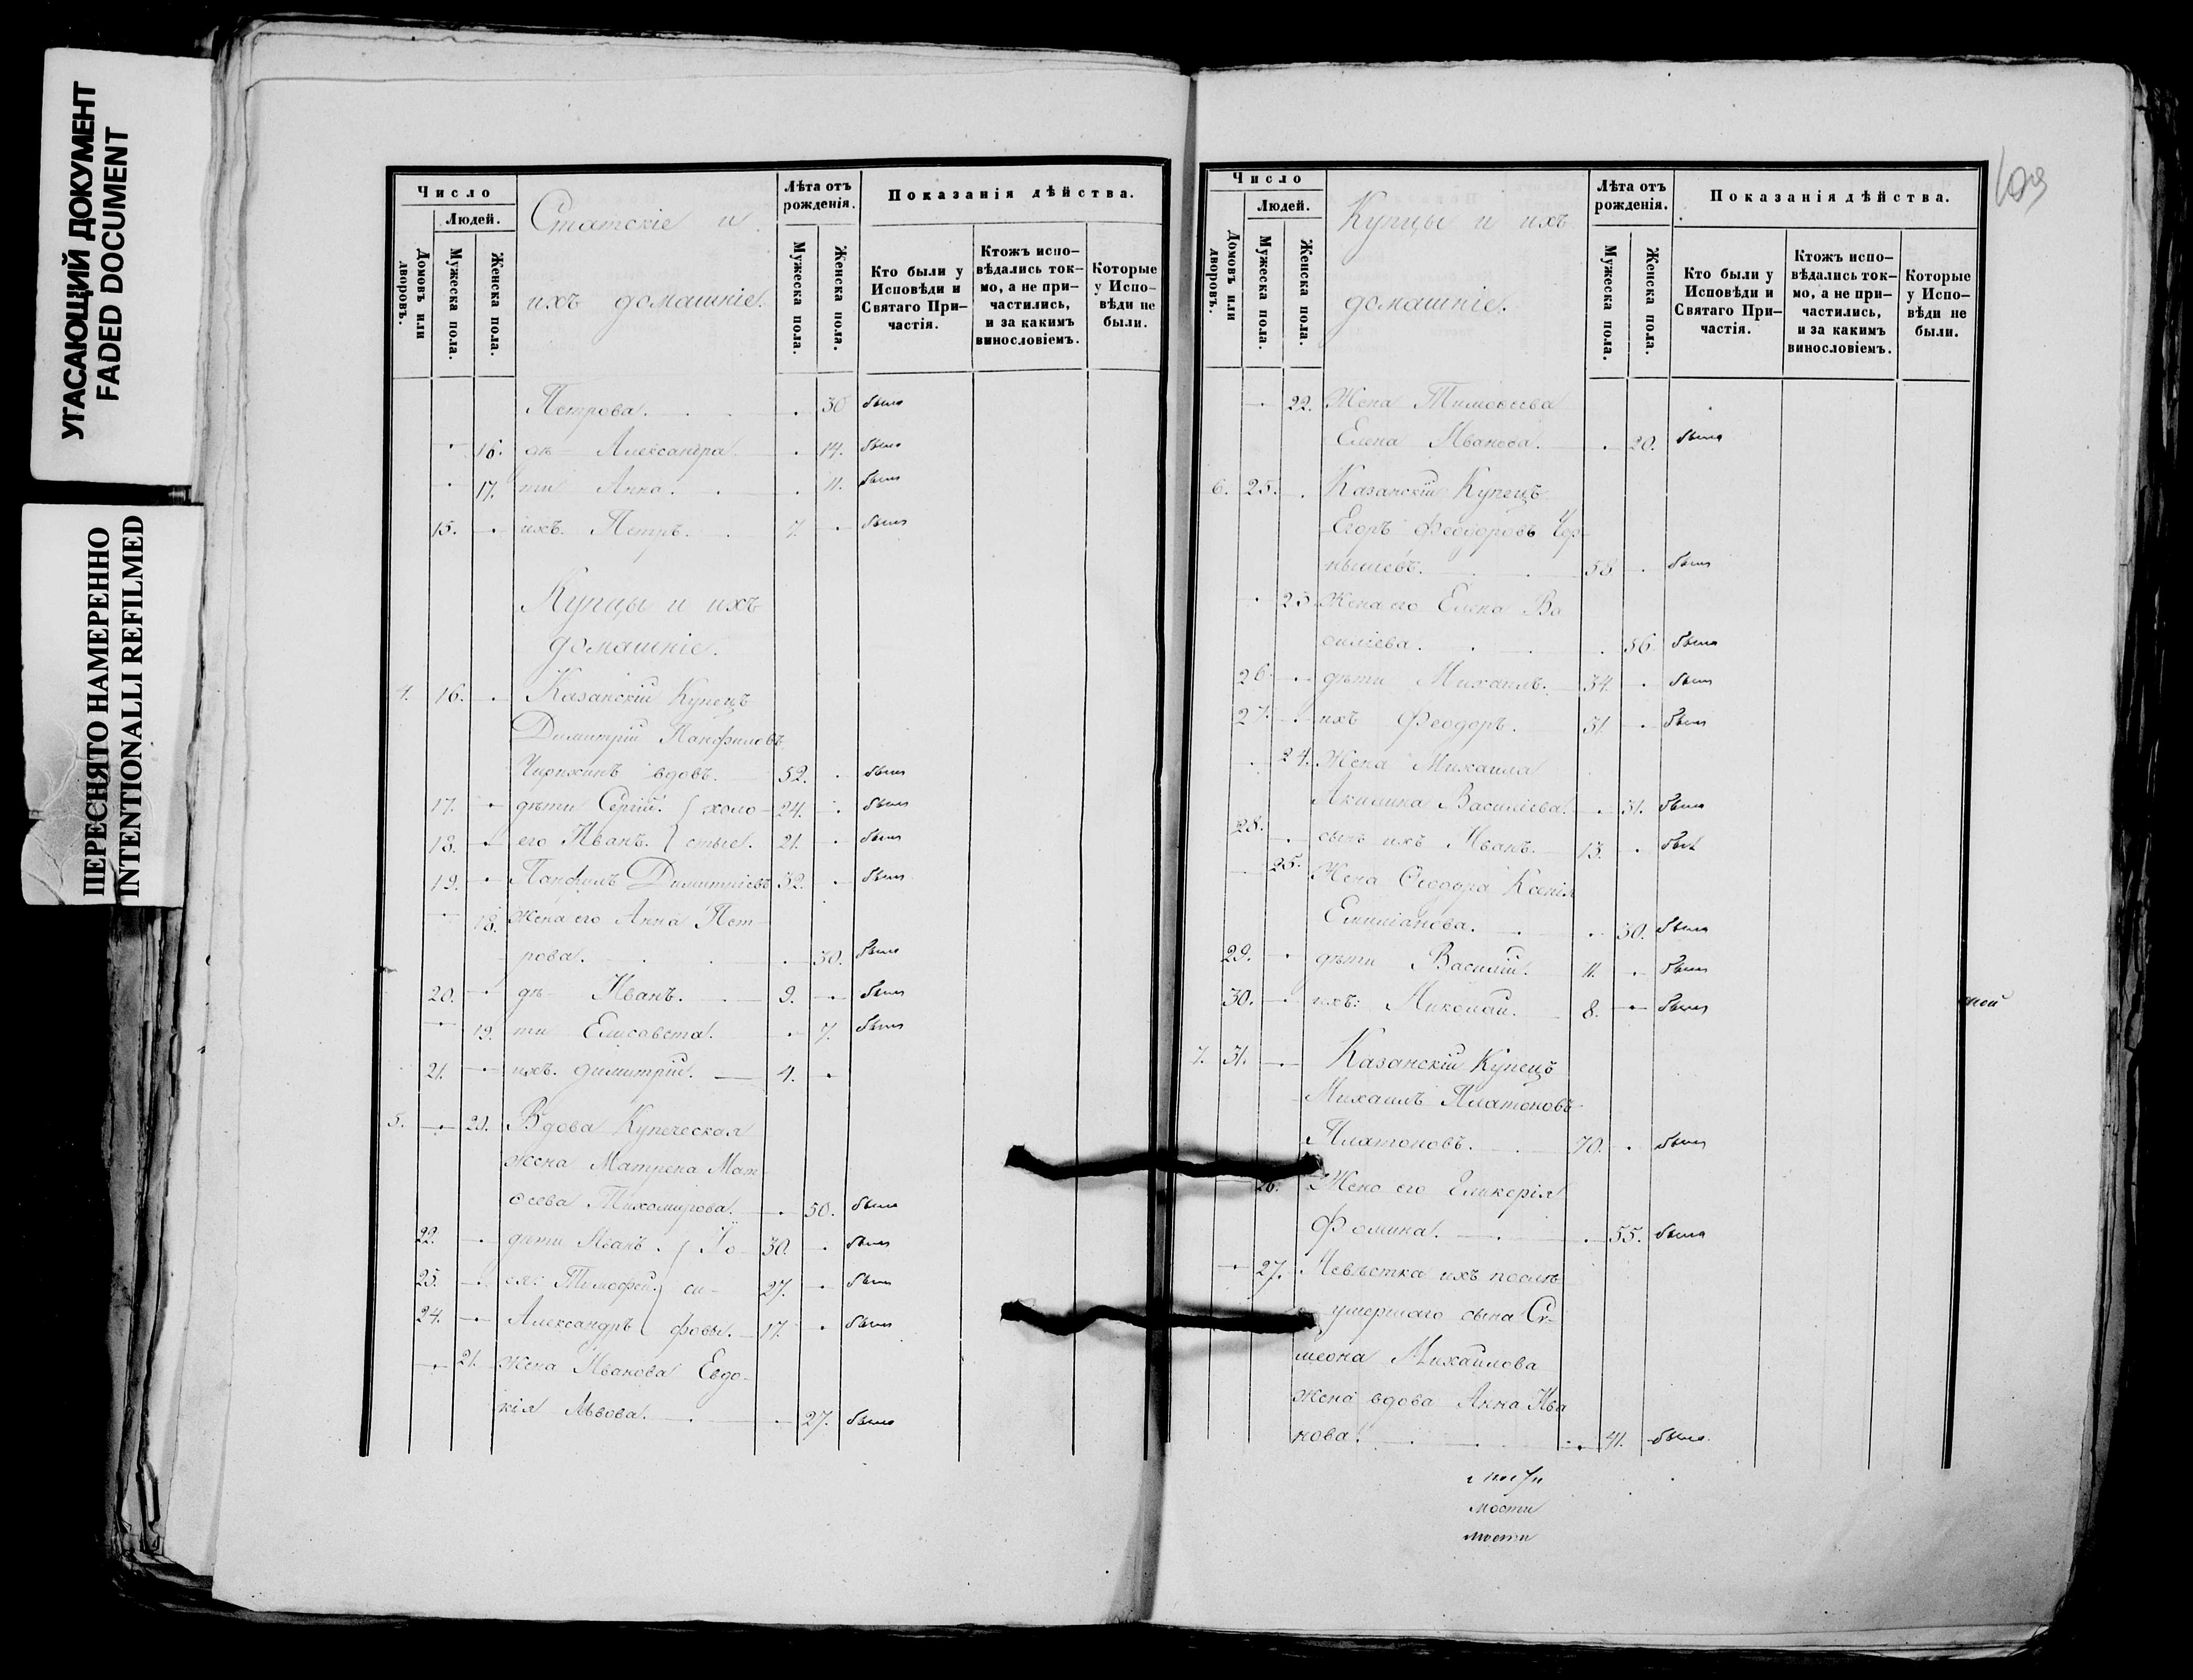 УГАСАЮЩИЙ ДОКУМЕНТ
FADED DOCUMENT
ПЕРЕСНЯТО НАМЕРЕННО
INTENTIONALLI REFILMED
Число
Людей.
Домовъ или дворовъ.
Мужеска пола.
Женска пола.
Статскіе и
ихъ домашніе.
Лѣта отъ рожденія.
Мужеска пола.
Женска пола.
Показанія дѣйства.
Кто были у Исповѣди и Святаго При-частія.
Ктожъ испо-вѣдались ток-мо, а не при-частились, и за какимъ винословіемъ.
Которые у Испо-вѣди не были.
Петрова. 30 была
16. дѣ- Александра 14. была
17. ти Анна. 11. была
15. ихъ. Петръ. 7. былъ
Купцы и ихъ
домашніе.
4. 16. Казанскій Купецъ
Димитрій Панфиловъ
Чирихинъ вдовъ. 52. былъ
17. дѣти Сергій. холо- 24. былъ
18. его Иванъ. стые. 21. былъ
19. Панфилъ Димитріевъ 32. былъ
18. Жена его Анна Пет-
рова. 30. была
20. дѣ- Иванъ. 9. былъ
19. ти Елисавета. 7. была
21. ихъ. Димитрій. 4.
5. 20. Вдова Купеческая
жена Матрена Мат-
ѳеева Тихомирова. 50. была
22. дѣти Иванъ. Хо- 30. былъ
23. ея: Тимофей. 27. былъ
24. Александръ 17. былъ
21. Жена Иванова Евдо-
кія Львова. 27. была
Число
Людей.
Домовъ или дворовъ.
Мужеска пола.
Женска пола.
Купцы и ихъ
домашніе.
Лѣта отъ рожденія.
Мужеска пола.
Женска пола.
Показанія дѣйства.
Кто были у Исповѣди и Святаго При-частія.
Ктожъ испо-вѣдались ток-мо, а не при-частились, и за какимъ винословіемъ.
Которые у Испо-вѣди не были.
22. Жена Тимоѳеева
Елена Иванова. 20. была
6. 25. Казанскій Купецъ
Егоръ Феодоровъ Чер-
нышевъ. 58 былъ
23 Жена его Елена Ва
силіева. 56 была
26 дѣти Михаилъ. 34. былъ
27. ихъ Феодоръ. 31. былъ
24. Жена Михаила
Акилина Василіева. 31. была
28. сынъ ихъ Иванъ. 13. былъ
25. Жена Ѳеодора Ксенія
Емиліанова. 30. была
29. дѣти Василій. 11. былъ
30. ихъ: Николай. 8. былъ
7. 31. Казанскій Купецъ
Михаилъ Платоновъ
Платоновъ. 70. былъ
26. Жена его Гликерія
Фомина. 55. была
27. Невѣстка ихъ послѣ
умершаго сына Сѵ-
меона Михаилова
жена вдова Анна Ива
нова. 41. была
мости
мости